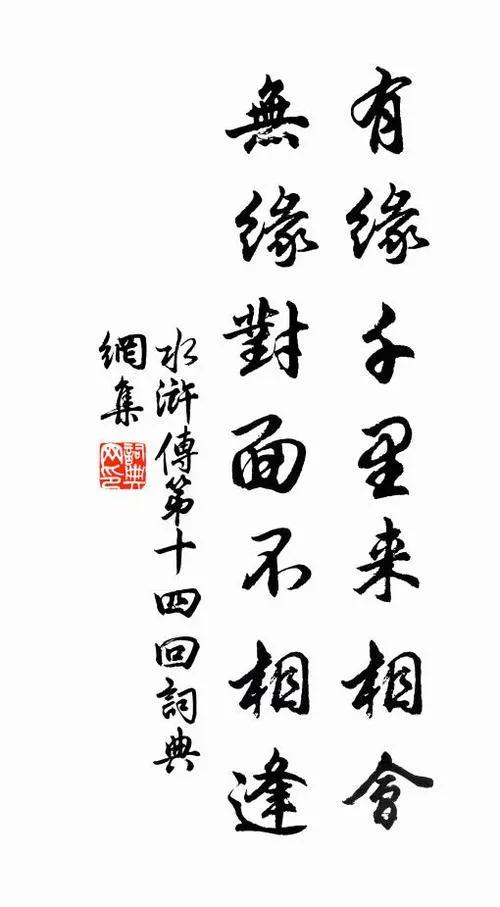 有缘千里来相會
無缘對面不相逢
水浒傳第十四回詞典
網集
詞典网印